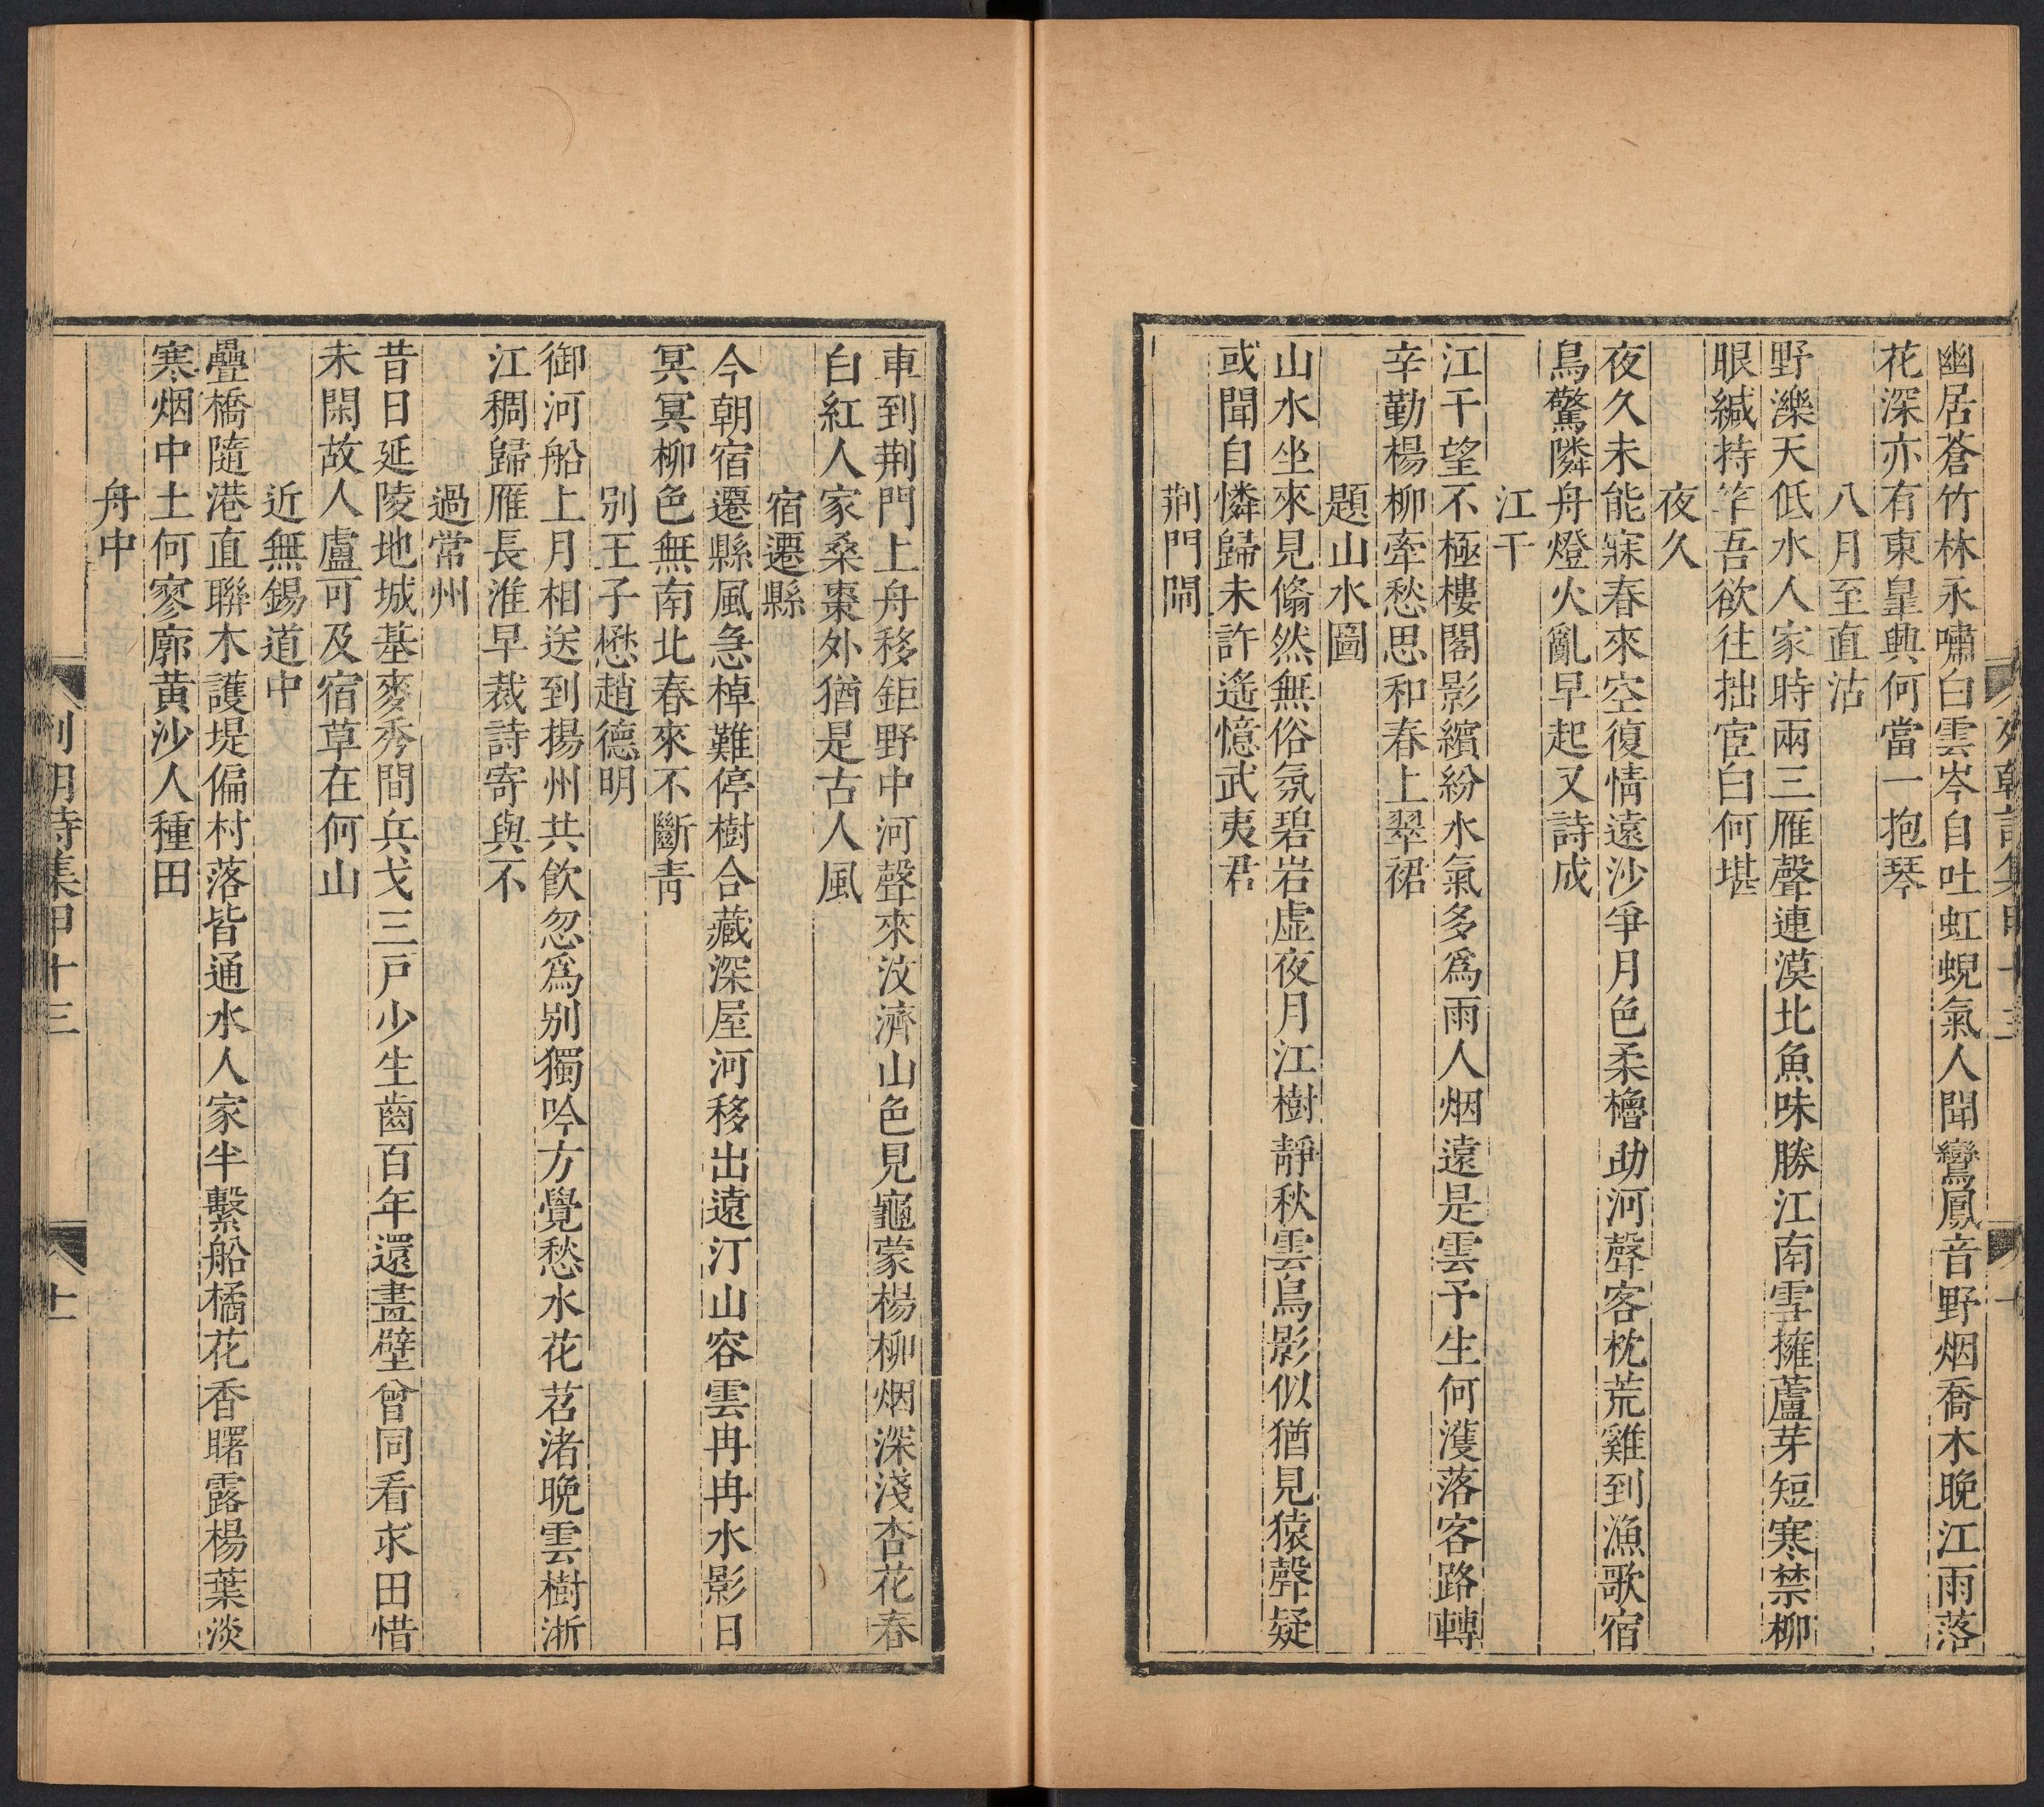 幽居蒼竹林永嘯白雲岑自吐虹蜺氣人聞鸞鳳音野烟喬木晚江雨落
花深亦有東皐興何當一抱琴
八月至直沽
野濼天低水人家時兩三雁聲連漠北魚味勝江南雪擁蘆芽短寒禁柳
眼緘持竿吾欲往拙宦白何堪
夜久
夜久未能寐春來空復情遠沙爭月色柔櫓助河聲客枕荒雞到漁歌宿
鳥驚隣舟燈火亂早起又詩成
江干
江干望不極樓閣影繽紛水氣多爲雨人烟遠是雲予生何濩落客路轉
辛勤楊柳牽愁思和春上翠裙
題山水圖
山水坐來見翛然無俗氛碧岩虛夜月江樹靜秋雲鳥影似猶見猿聲疑
或聞自憐歸未許遙憶武夷君
荆門閘
車到荆門上舟移鉅野中河聲來汶濟山色見龜蒙楊柳烟深淺杏花春
白紅人家桑棗外猶是古人風
宿遷縣
今朝宿遷縣風急棹難停樹合藏深屋河移出遠汀山容雲冉冉水影日
冥冥柳色無南北春來不斷靑
别王子懋趙德明
御河船上月相送到揚州共飮忽爲别獨吟方覺愁水花茗渚晩雲樹浙
江稠歸雁長淮早裁詩寄與不
過常州
昔日延陵地城基麥秀間兵戈三戸少生齒百年還畫壁曾同看求田惜
未閑故人盧可及宿草在何山
近無錫道中
疊橋隨港直聯木護堤偏村落皆通水人家半繫船橘花香曙露楊葉淡
寒烟中土何寥廓黄沙人種田
舟中
列朝詩集甲十三
十一